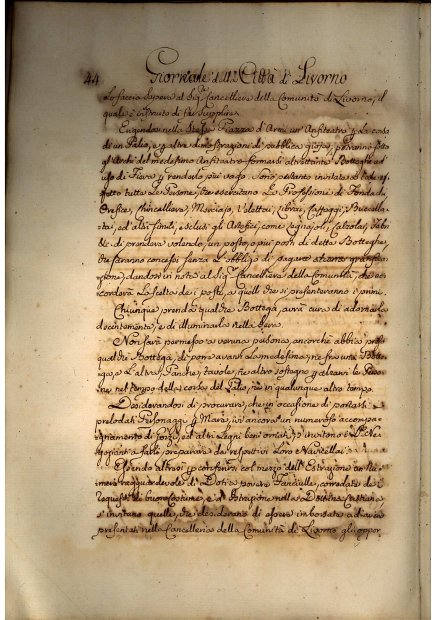 44 Giornale della Città di Livorno
Lo faccia sapere al Sig.r Cancelliere della Comunità di Livorno, il
quale è istruito di far supplire.
Erigendosi nella stessa Piazza d'Armi un Anfiteatro p la corsa
di un Palio, e p altre dimostrazioni di pubblica gioja,
gl'Archi del medesimo Anfiteatro formarsi altrettante Botteghe ad
uso di Fiera p renderlo più vago. Sono pertanto invitate a tale
effetto tutte le Persone, che esercitano la Professione di Fondachi,
Orefici, Chincaglieri, Merciajo, Librai, Caffaggi,
ed altri simili, esclusi gli Artefici, come Legnajoli, Calzolai,
di prendere volendo, un posto, o più posti di dette Botteghe,
che saranno concessi senza l'obbligo di pagare alcuna
dandosi in nota al Sig.r Cancelliere della Comunità, che
accorderà la scelta dei posti, a quelli che si presenteranno i primi.
Chiunque prenda qualche Bottega, avrà cura di adornarla
decentemente, e di illuminarla nella sera.
Non sarà permesso a veruna persona, ancorchè abbia preso
qualche Bottega, di porre avanti la medesima, ne fra una
e l'altra, Panche, tavole, nè altro sostegno p alzarvi le Persone
nel tempo della corsa del Palio, nè in qualunque altro tempo.
Desiderandosi di procurare, che in occasione di portarsi
prelodati Personaggi p Mare, vi ancora un numeroso accompagnamento
di ed altri Legni ben ornati, s'invitano i
Negozianti a farle preparare da respettivi Loro Navicellai.
Essendo altresì p conferirsi col mezzo dell'Estrazione un
numero ragguardevole di Doti a povere Fanciulle, corredate dei
requisiti di buon Costume, e d'Istruzione nella Dottrina Cristiana
s'invitano quelle, che desiderano di essere imborsate ad aver
presentati nella Cancelleria della Comunità di Livorno gli oppor-